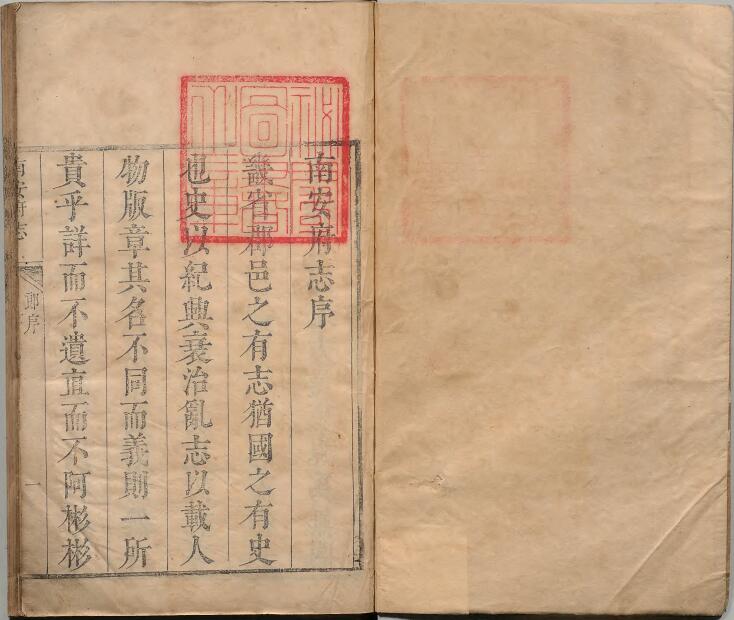 南安府志序
畿省郡邑之有志猶國之有史
也史以紀興衰治亂志以載人
物版章其名不同而義則一所
貴乎詳而不遺直而不阿彬彬
南安府志
郎序
一